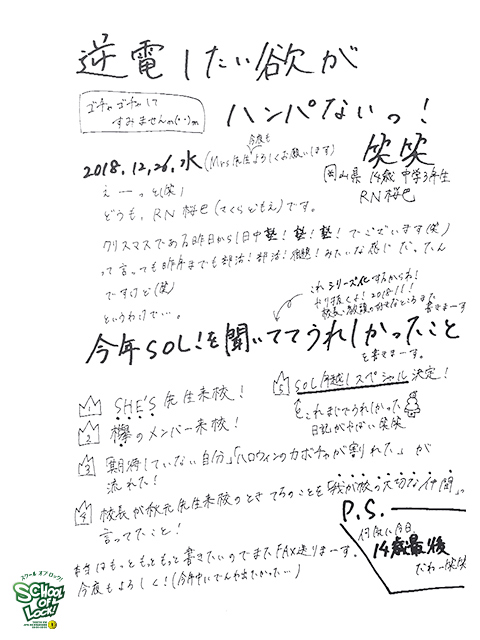 逆電したい欲が
ハンパないっ！
ゴチャゴチャして
すみませんm(..)m
笑笑
2018.12.26.水
今夜も
(Mrs先生よろしくお願いします)
岡山県 14歳 中学3年生
RN 桜巴
えーっと(笑)
どうも、RN桜巴(さくらどもえ)です。
クリスマスである昨日から1日中塾！塾！塾！でございます(笑)
って言っても昨年までも部活！部活！宿題！みたいな感じだったん
ですけど(笑)
というわけで…。
これシリーズ化するからね！
やり抜くよ！2018！！
今年SOL！を聞いててうれしかったこと
を書きまーす。
1 SHE'S先生来校！
2 欅のメンバー来校！
3 「期待していない自分」「ハロウィンのカボチャが割れた」が
流れた！
4 校長が秋元先生来校のとき てちのことを「我が校の大切な仲間」って
言ってたこと！
5 SOL年越しスペシャル決定！
これまでうれしかった
日記がやばい笑笑
本当はもっともっともっと書きたいのでまたFAX送りまーす。
今夜もよろしく！(今年中にでんわ出たかった…)
P.S.
付け足し今日、
14歳最後
だわー笑笑
スクール オブ ロック！
SCHOOL OF LOCK!